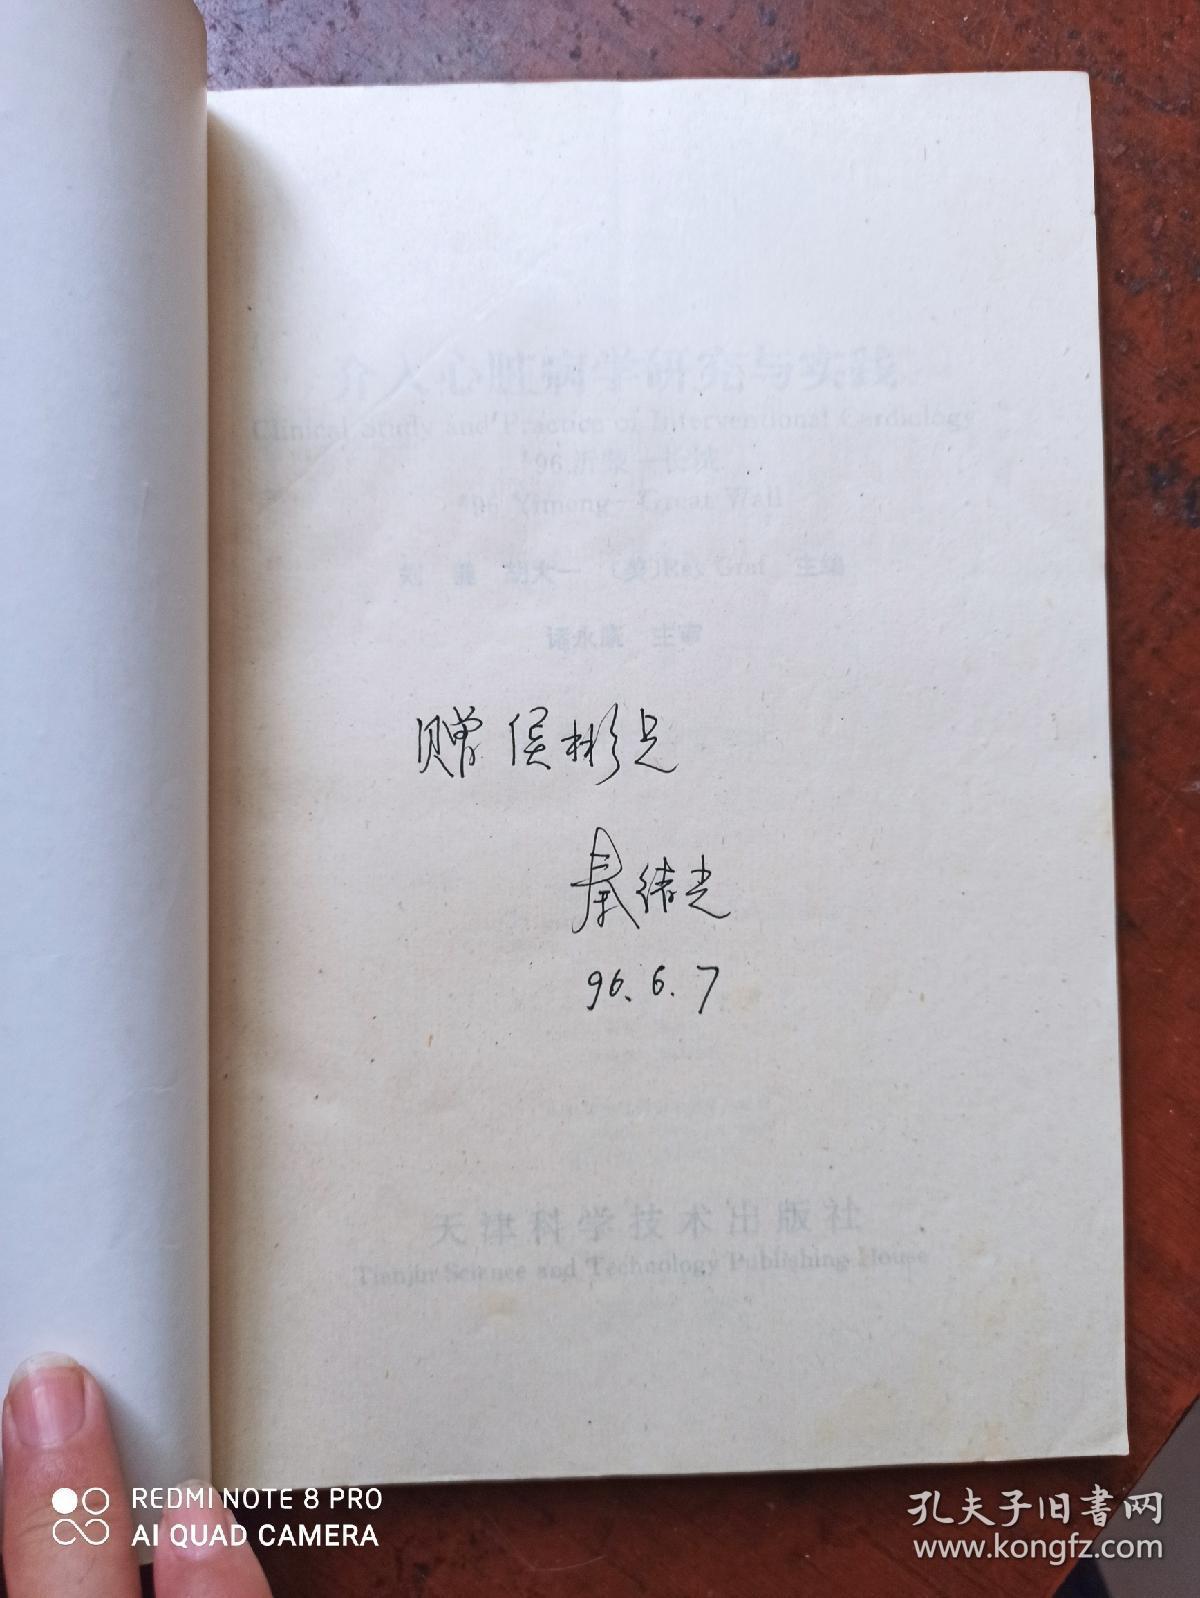 介入心脏病学研究与实践
Clinical Study and Practice of Interventional Cardiology
'96 沂蒙—长城
'96 Yimeng—Great Wall
胡大一 (美)Ray Graf 主编
主审
赠 侯彬兄
秦绪光
96.6.7
天津科学技术出版社
Tianjin Science and Technology Publishing House
REDMI NOTE 8 PRO
AI QUAD CAMERA
孔夫子旧书网
www.kongfz.com